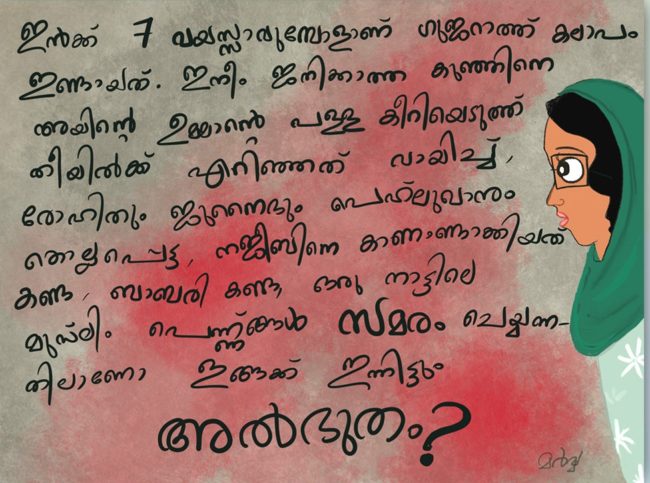 ഇൻക്ക് 7 വയസ്സാവുമ്പോളാണ് ഗുജറാത്ത് കലാപം
ഇണ്ടായത്. ഇനീം ജനിക്കാത്ത കുഞ്ഞിനെ
അയിന്റെ ഉമ്മാന്റെ പള്ള കീറിയെടുത്ത്
തീയിൽക്ക് എറിഞ്ഞത് വായിച്ച്,
രോഹിതും ജുനൈദും പെഹ്‌ലുഖാനും
കൊല്ലപ്പെട്ട, നജീബിനെ കാണാണ്ടാക്കിയത്
കണ്ട, ബാബരി കണ്ട, ഒരു നാട്ടിലെ
മുസ്‌ലിം പെണ്ണ്ങ്ങൾ സമരം ചെയ്യണ-
തിലാണോ ഇങ്ങക്ക് ഇന്നിട്ടും
അൽഭുതം?